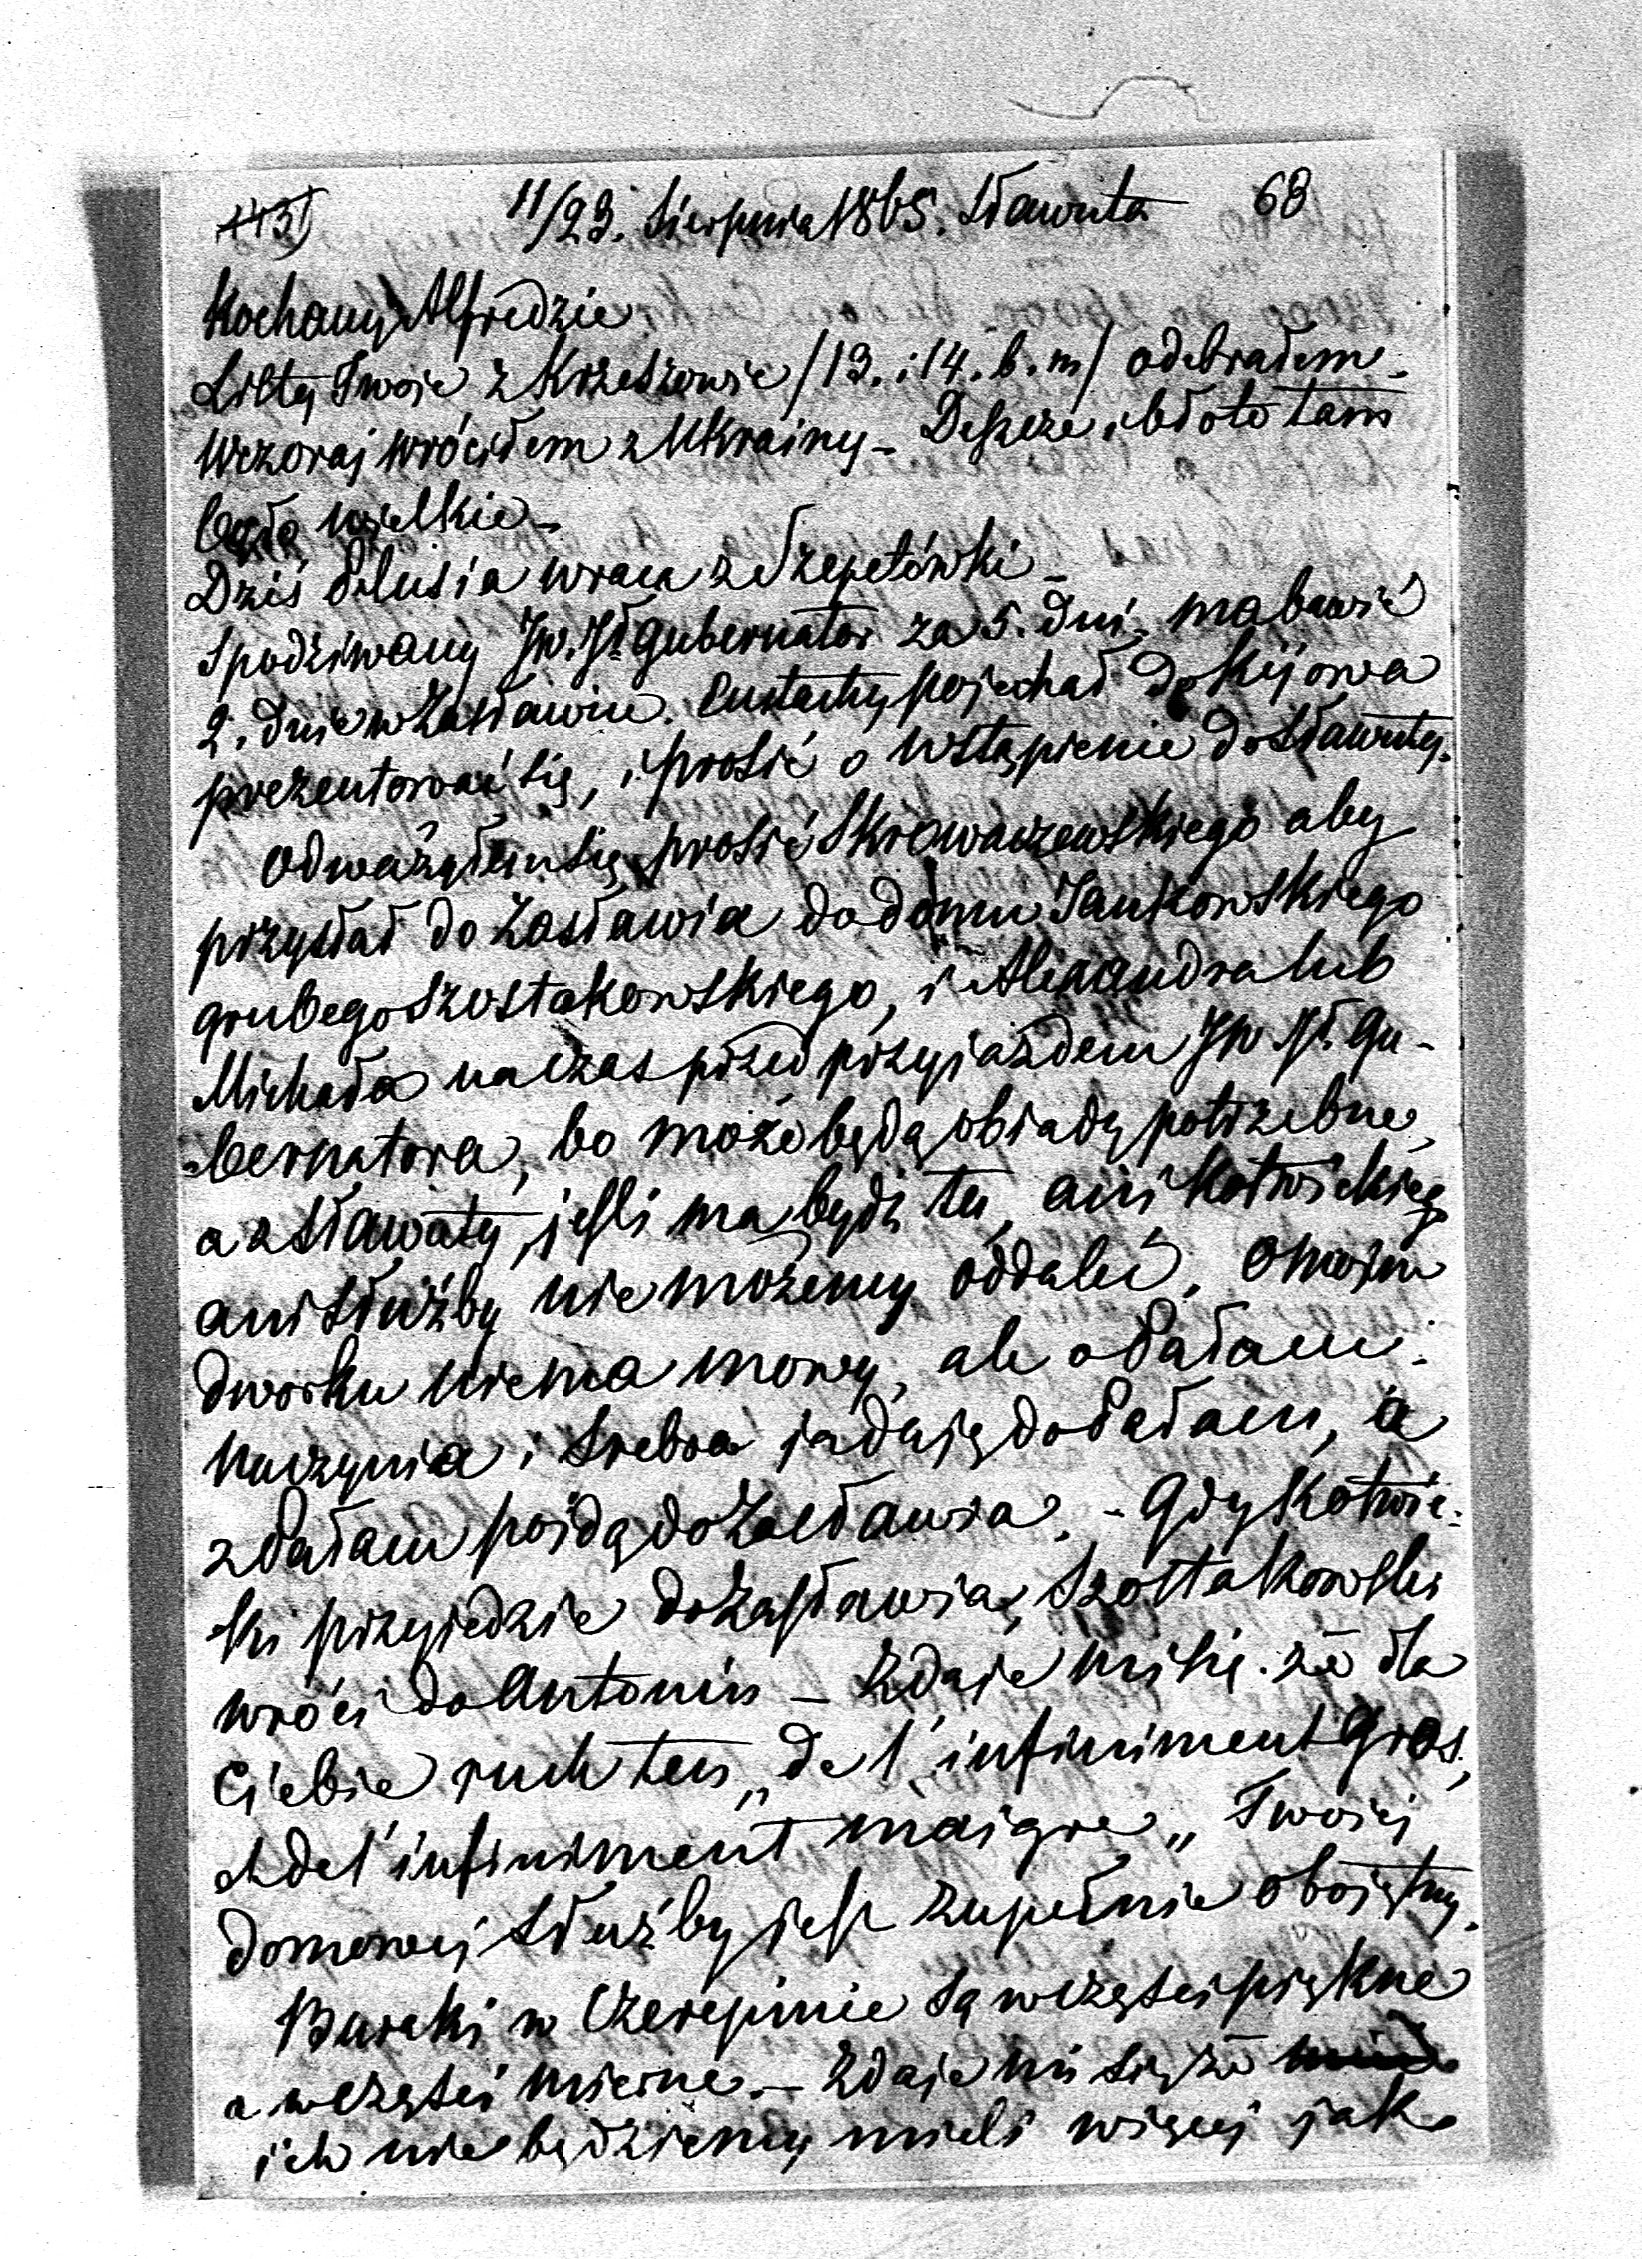 11/23. Sierpnia 1865. Sławuta 68
Kochany Alfredzie
Listy Twoje z Krzeszowic /13. i 14. b. m/ odebrałem.
Wczoraj wróciłem z Ukrainy – Deszcze i błoto tam
było wielkie –
Dziś Polusia wraca z Szepetówki –
Spodziwany Jw. Jł. Gubernator za 5. dni, ma bawić
2. dnie w Zasławiu. Eustachy pojechał do Kijowa
prezentować się, i prosić o wstąpienie do Sławuty.
Odważyłem się prosić Skrowaczewskiego aby
przysłał do Zasławia do domu Jankowskiego
grubego Szostakowskiego, i Alexandra lub
Michała na czas przed przyjazdem JW Jł. Gu-
-bernatora, bo może będą obiady potrzebne,
a z Sławuty, jeśli ma bydź tu, ani Kotwickieg
ani służby nie możemy oddalić, o moim
dworku niema mowy, ale o Pałacu:
Naczynia i Srebra jadają do Pałacu, a
z Pałacu pójdą do Zasławia. – Gdy Kotwic-
ki przyjedzie do Zasławia, Szostakowski
wróci do Antonin – Zdaje mi się że dla
Ciebie ruch ten „de l'infiniment gros,
et de l'infiniment maigre„ Twojej
domowej służby jest zupełnie obojętny.
Buraki w Czerepinie są w części piękne
a w części mierne. – Zdaje mi się że
ich nie będziemy mieli więcej jak